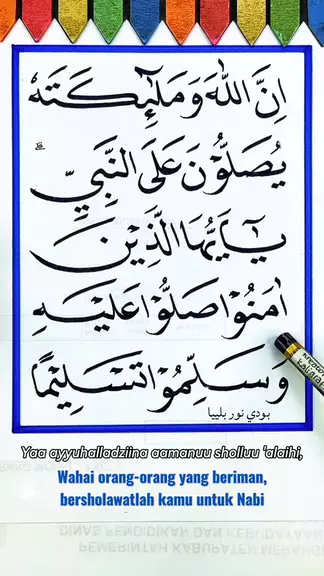 اِنَّ اللّٰهَ وَمَلٰۤىِٕكَتَهٗ
يُصَلُّوْنَ عَلَى النَّبِيِّۗ
يٰٓاَيُّهَا الَّذِيْنَ
اٰمَنُوْا صَلُّوْا عَلَيْهِ
وَسَلِّمُوْا تَسْلِيْمًا
بودي نور بلييا
Yaa ayyuhalladziina aamanuu sholluu 'alaihi,
Wahai orang-orang yang beriman,
bersholawatlah kamu untuk Nabi
DINAS PENDIDIKAN DAN KEBUDAYAAN
PEMERINTAH KABUPATEN MERANGI